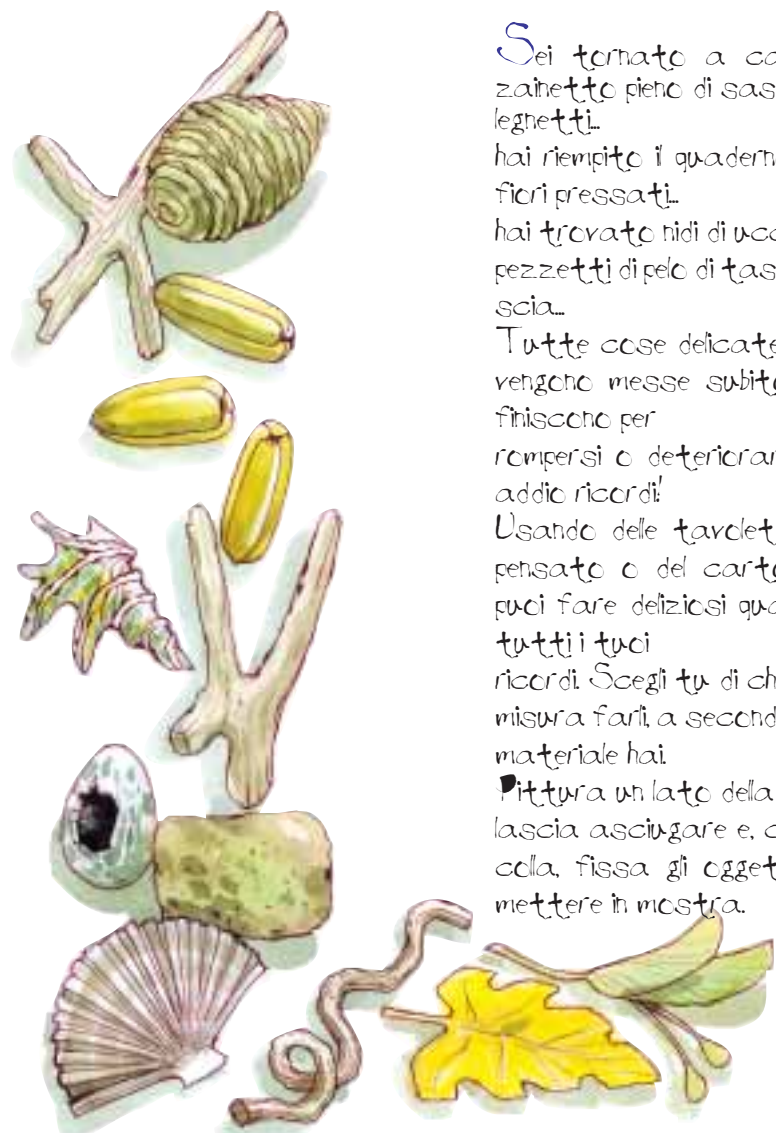 Sei tornato a ca
zainetto pieno di sas
legnetti...
hai riempito il quadern
fiori pressati...
hai trovato nidi di ucc
pezzetti di pelo di tas
scia...
Tutte cose delicate
vengono messe subito
finiscono per
rompersi o deteriorar
addio ricordi!
Usando delle tavolet
pensato o del carto
puoi fare deliziosi qua
tutti i tuoi
ricordi. Scegli tu di ch
misura farli, a second
materiale hai.
Pittura un lato della
lascia asciugare e, c
colla, fissa gli ogget
mettere in mostra.